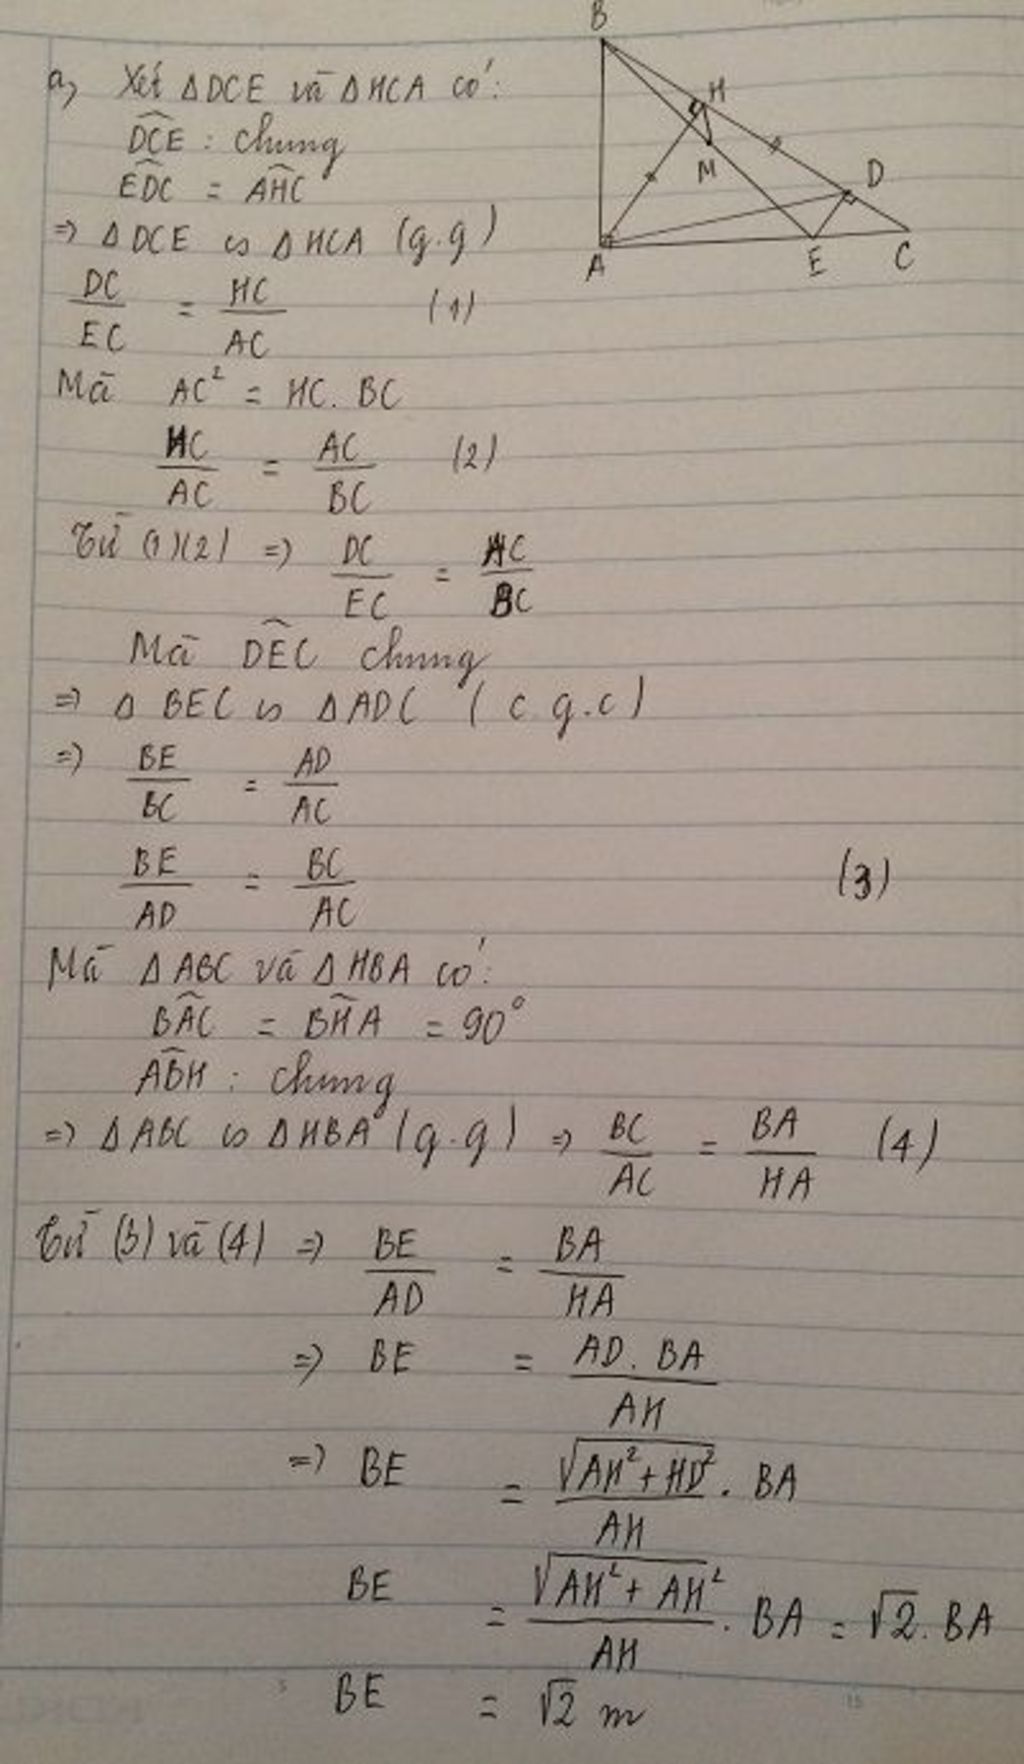 B
H
M
D
A
E
C
a, Xét ΔDCE và ΔHCA có:
\widehat{DCE} : chung
\widehat{EDC} = \widehat{AHC}
⇒ ΔDCE ∽ ΔHCA (g.g)
DC/EC = HC/AC (1)
Mà AC² = HC. BC
HC/AC = AC/BC (2)
Từ (1)(2) ⇒ DC/EC = AC/BC
Mà \widehat{DEC} chung
⇒ Δ BEC ∽ ΔADC ( c g.c)
⇒ BE/BC = AD/AC
BE/AD = BC/AC (3)
Mà ΔABC và ΔHBA có:
\widehat{BAC} = \widehat{BHA} = 90°
\widehat{ABH} : chung
⇒ ΔABC ∽ ΔHBA (g.g) ⇒ BC/AC = BA/HA (4)
Từ (3) và (4) ⇒ BE/AD = BA/HA
⇒ BE = AD. BA/AH
⇒ BE = √(AH² + HD²)/AH . BA
BE = √(AH² + AH²)/AH . BA = √2. BA
BE = √2 m